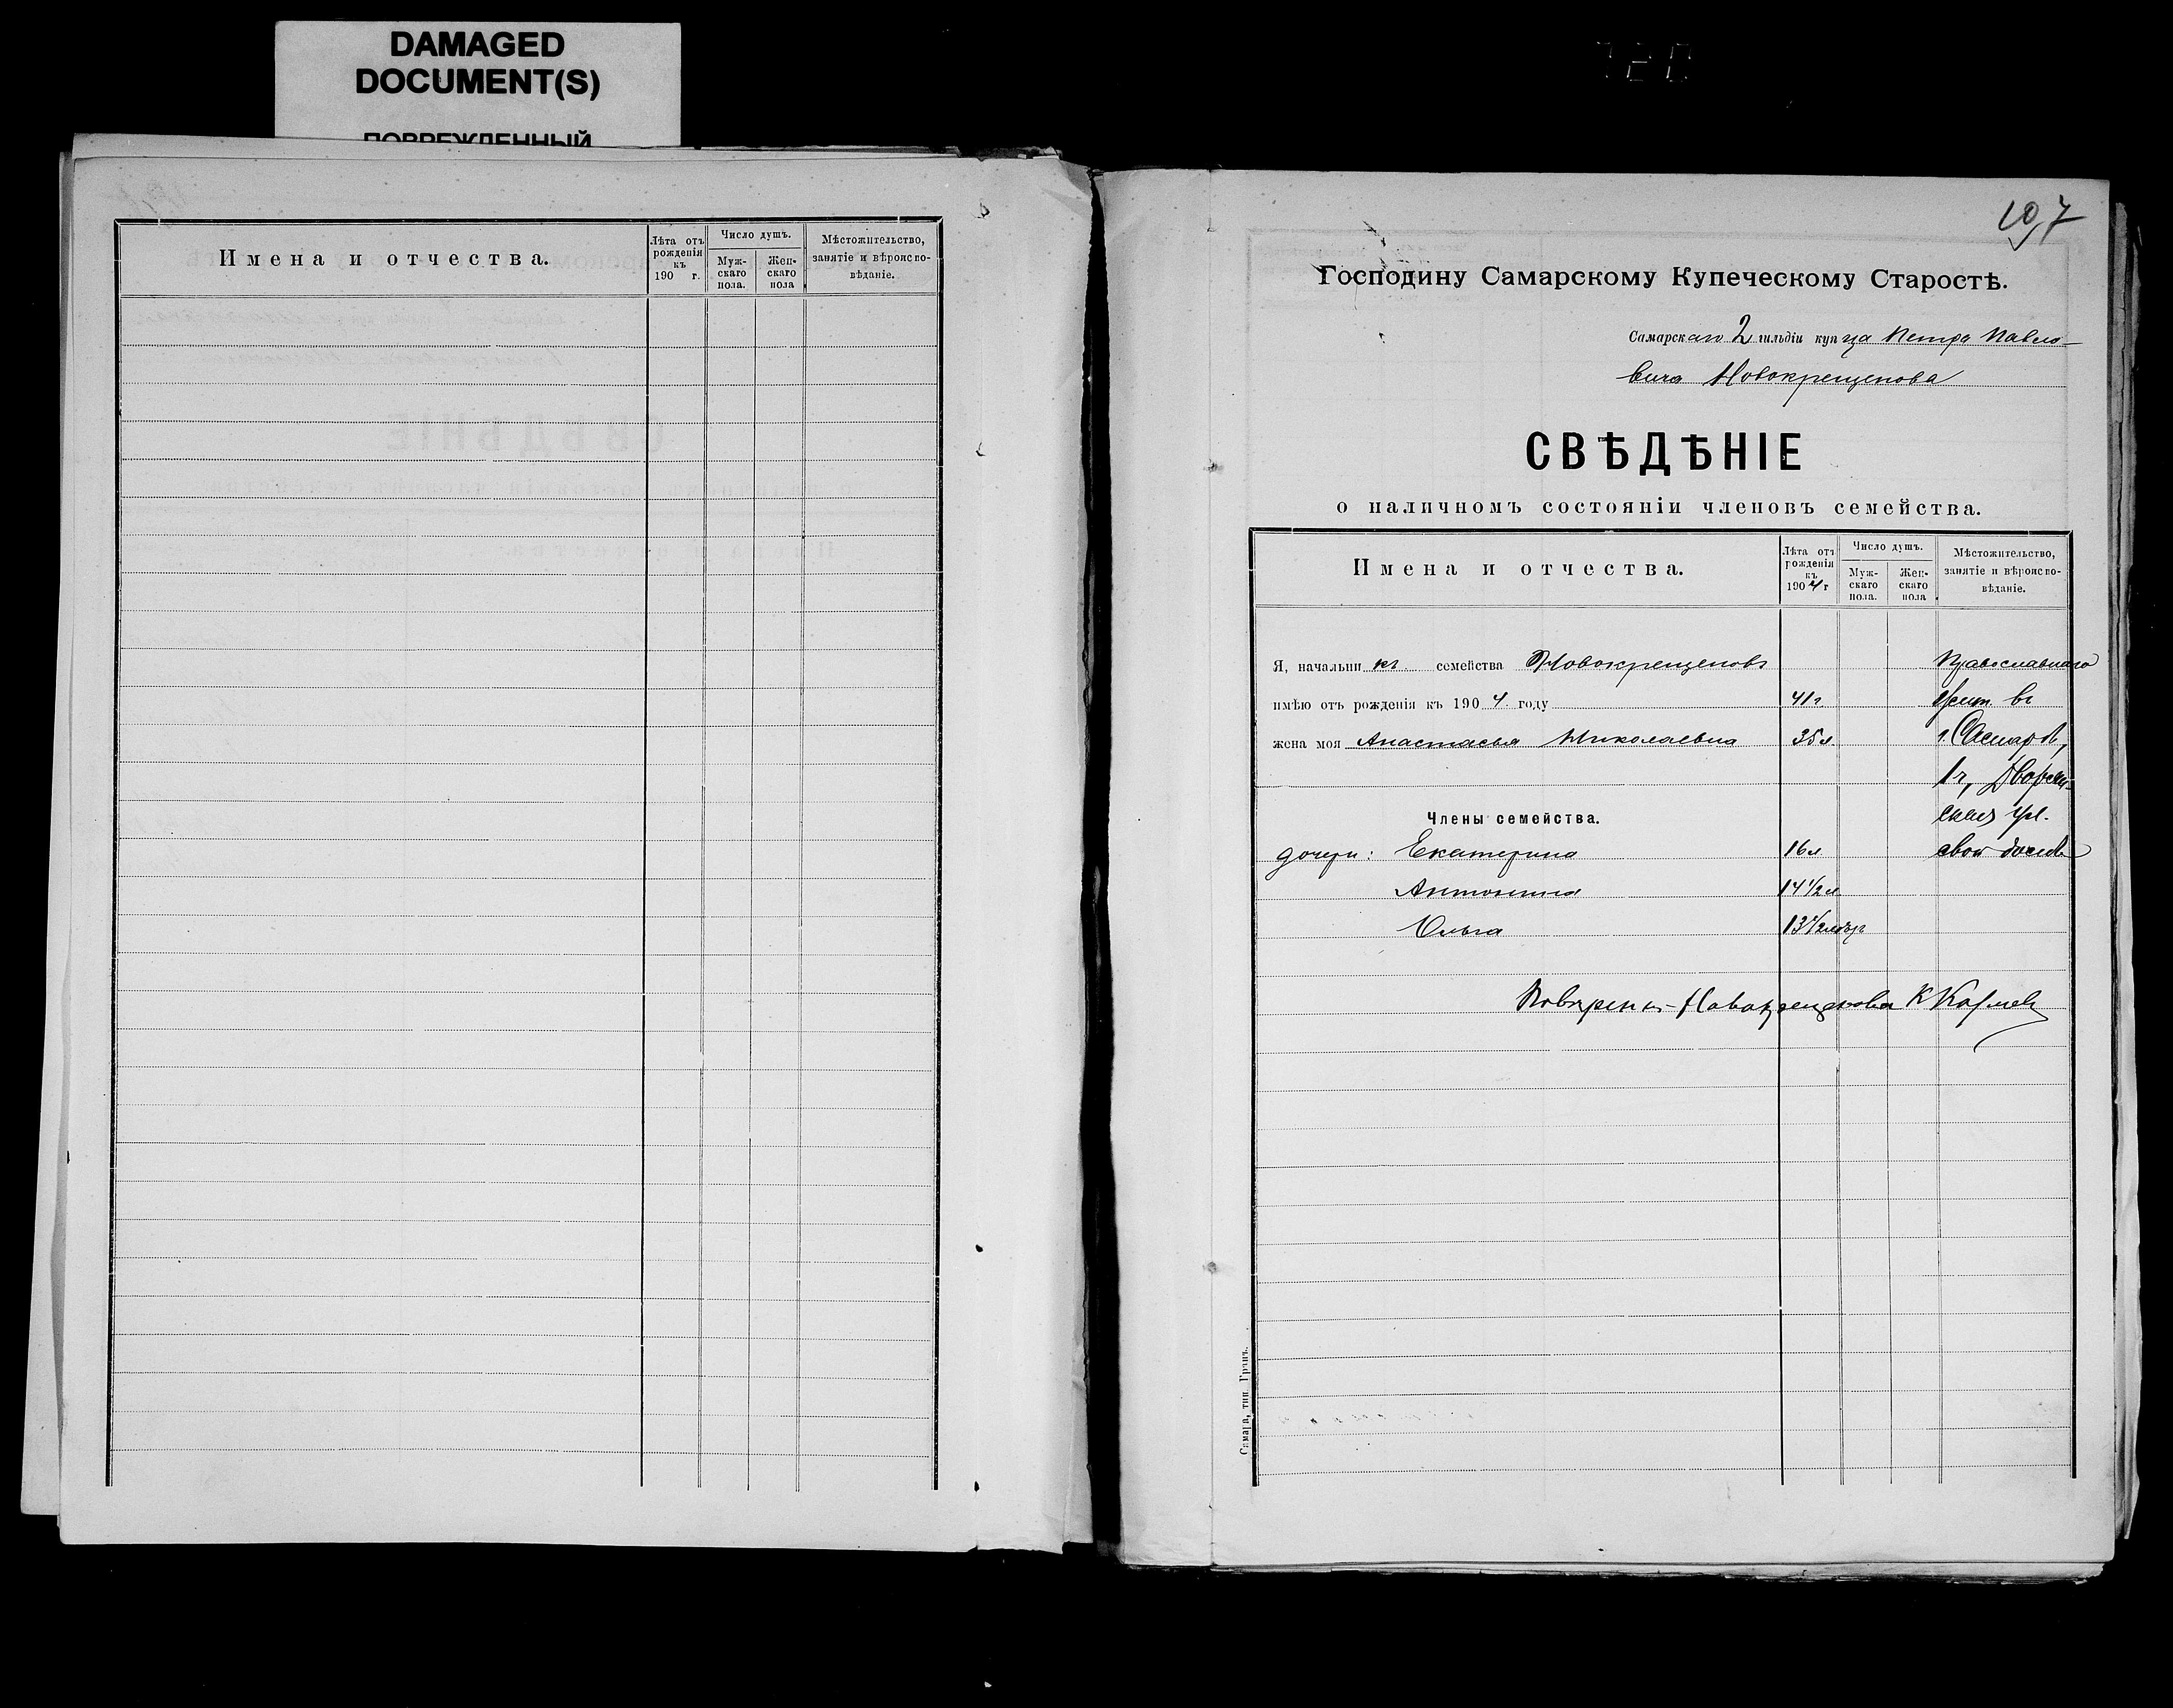 DAMAGED
DOCUMENT(S)
ПОВРЕЖДЕННЫЙ
Имена и отчества.
Лѣта отъ рожденія къ 190 г.
Число душъ.
Муж-скаго пола.
Жен-скаго пола
Мѣстожительство, занятіе и вѣроиспо-вѣданіе.
197
Господину Самарскому Купеческому Старостѣ.
Самарскаго 2 гильдіи купца Петра Павло-
вича Новокрещенова
СВѢДѢНІЕ
о наличномъ состояніи членовъ семейства.
Имена и отчества.
Лѣта отъ рожденія къ 1904 г
Число душъ.
Муж-скаго пола.
Жен-скаго пола
Мѣстожительство, занятіе и вѣроиспо-вѣданіе.
Я, начальникъ семейства Новокрещеновъ Православнаго
имѣю отъ рожденія къ 1904 году 41 г. жит. въ
жена моя Анастасья Николаевна 35 л. г. Самарѣ,
1 ч, Дворян-
Члены семейства. ская ул.
дочери: Екатерина 16 л свой домъ
Антонина 14 1/2 л
Ольга 13 1/2
Новокрещенова К
Самара, тип. Гранъ.